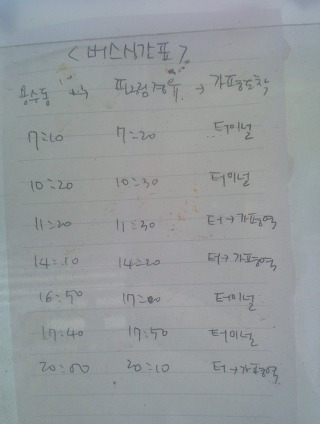 <버스시간표>
용수동 → 피크럼경유 → 가평도착
7:10 7:20 터미널
10:20 10:30 터미널
11:20 11:30 터→가평역
14:10 14:20 터→가평역
16:50 17:00 터미널
17:40 17:50 터미널
20:00 20:10 터→가평역